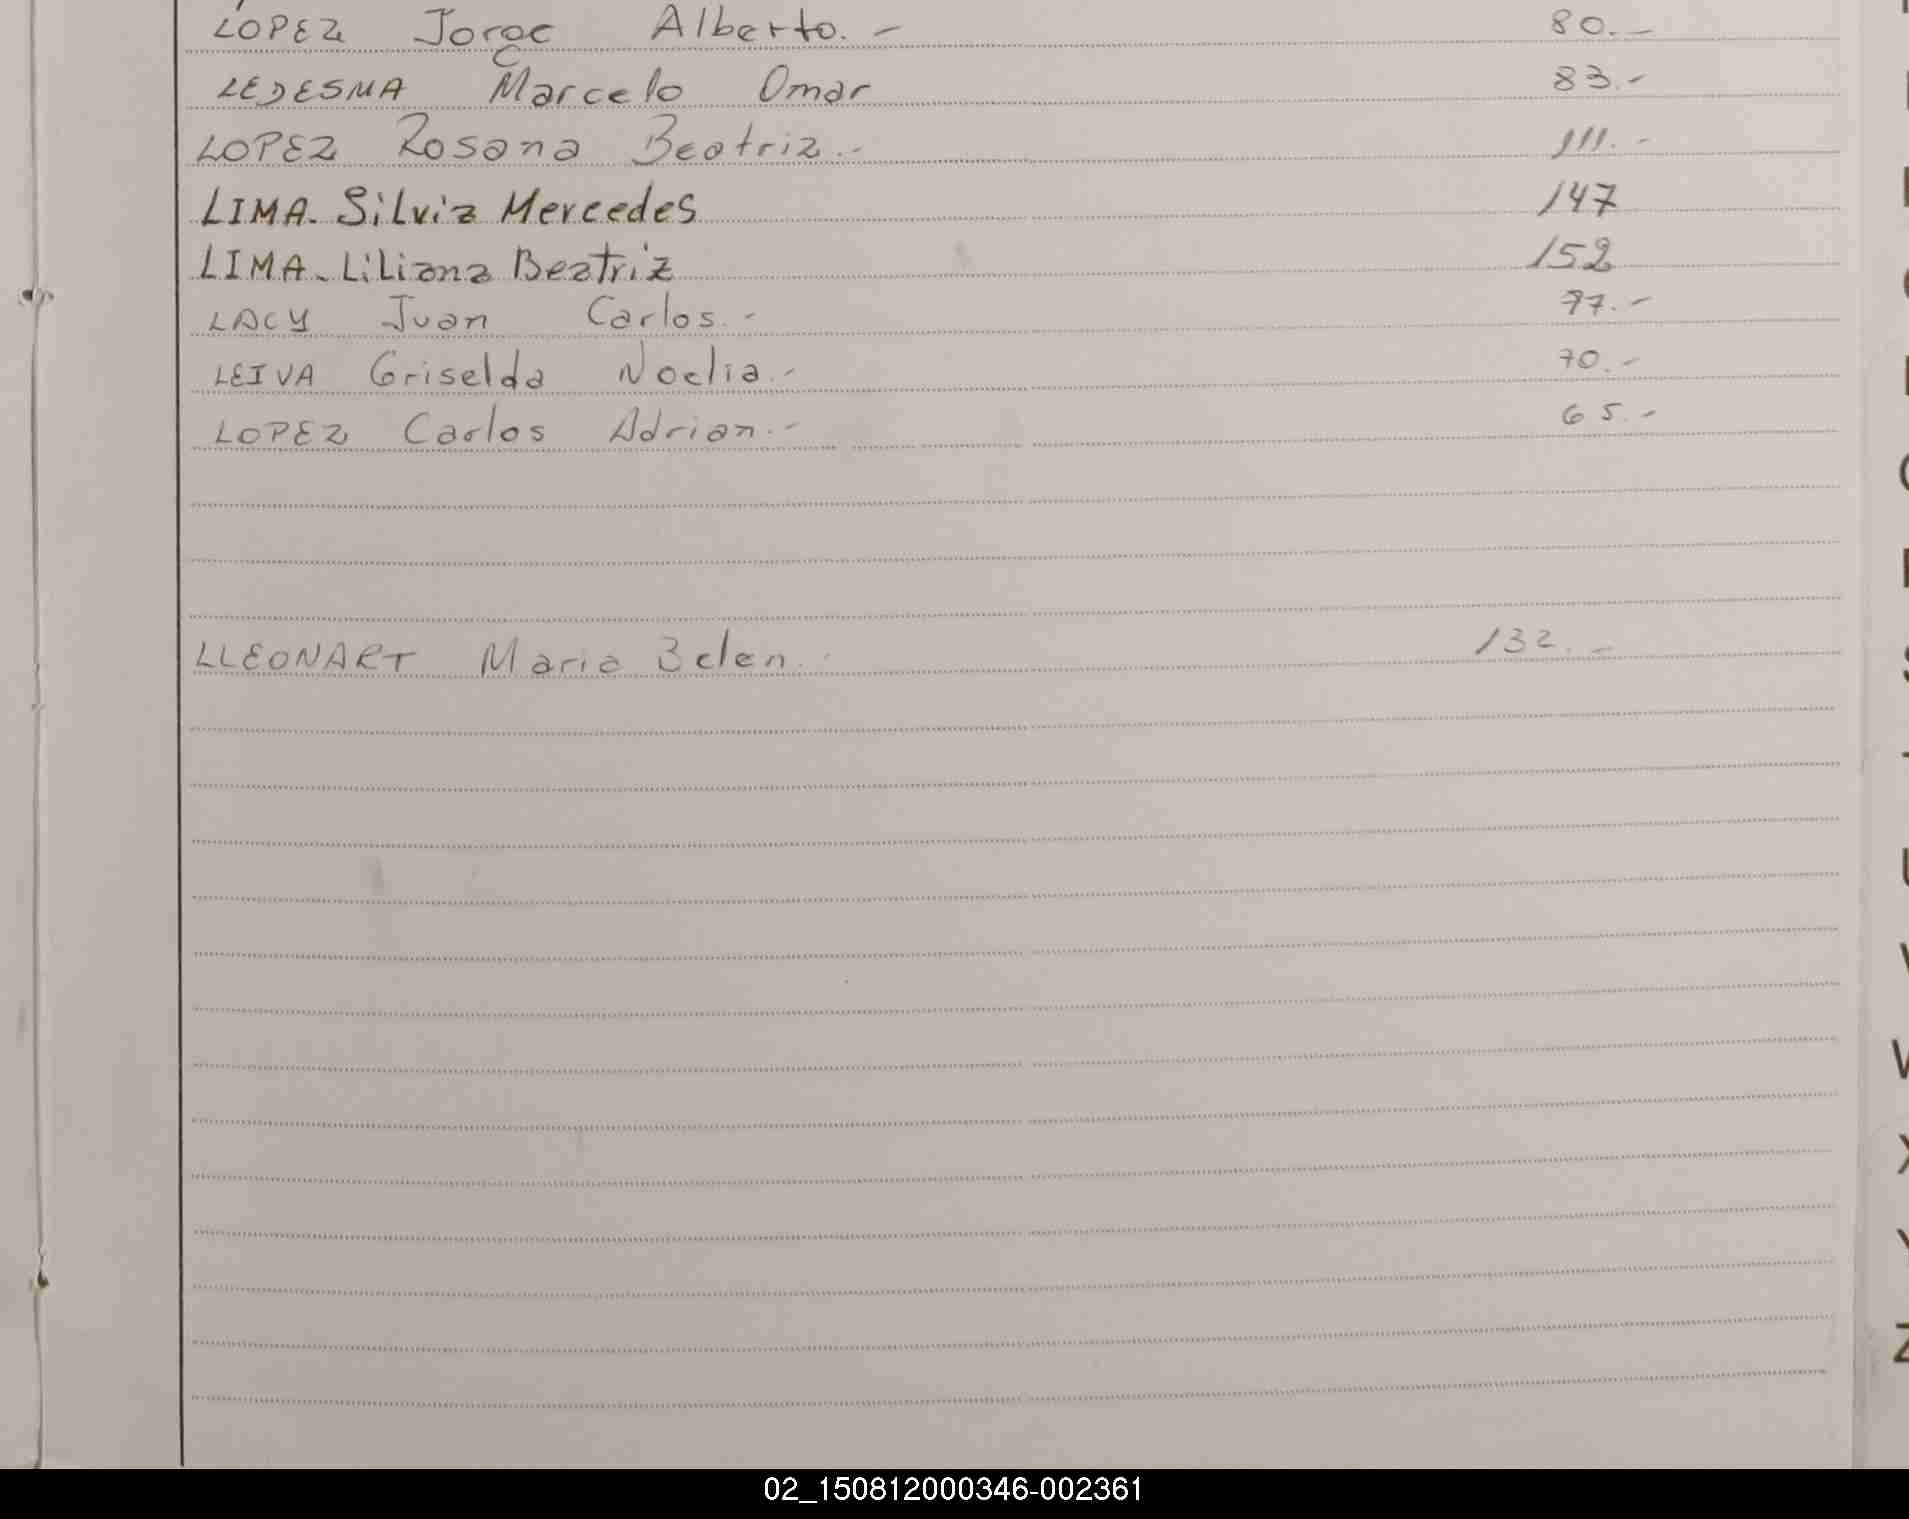 LOPEZ Jorge Alberto.- 80.-
LEDESMA Marcelo Omar 83.-
LOPEZ Rosana Beatriz.- 111.-
LIMA. Silvia Mercedes 147
LIMA. Liliana Beatriz 152
LACY Juan Carlos.- 77.-
LEIVA Griselda Noelia.- 70.-
LOPEZ Carlos Adrian.- 65.-
LLEONART Maria Belen. 132.-
W
X
Y
Z
02_150812000346-002361